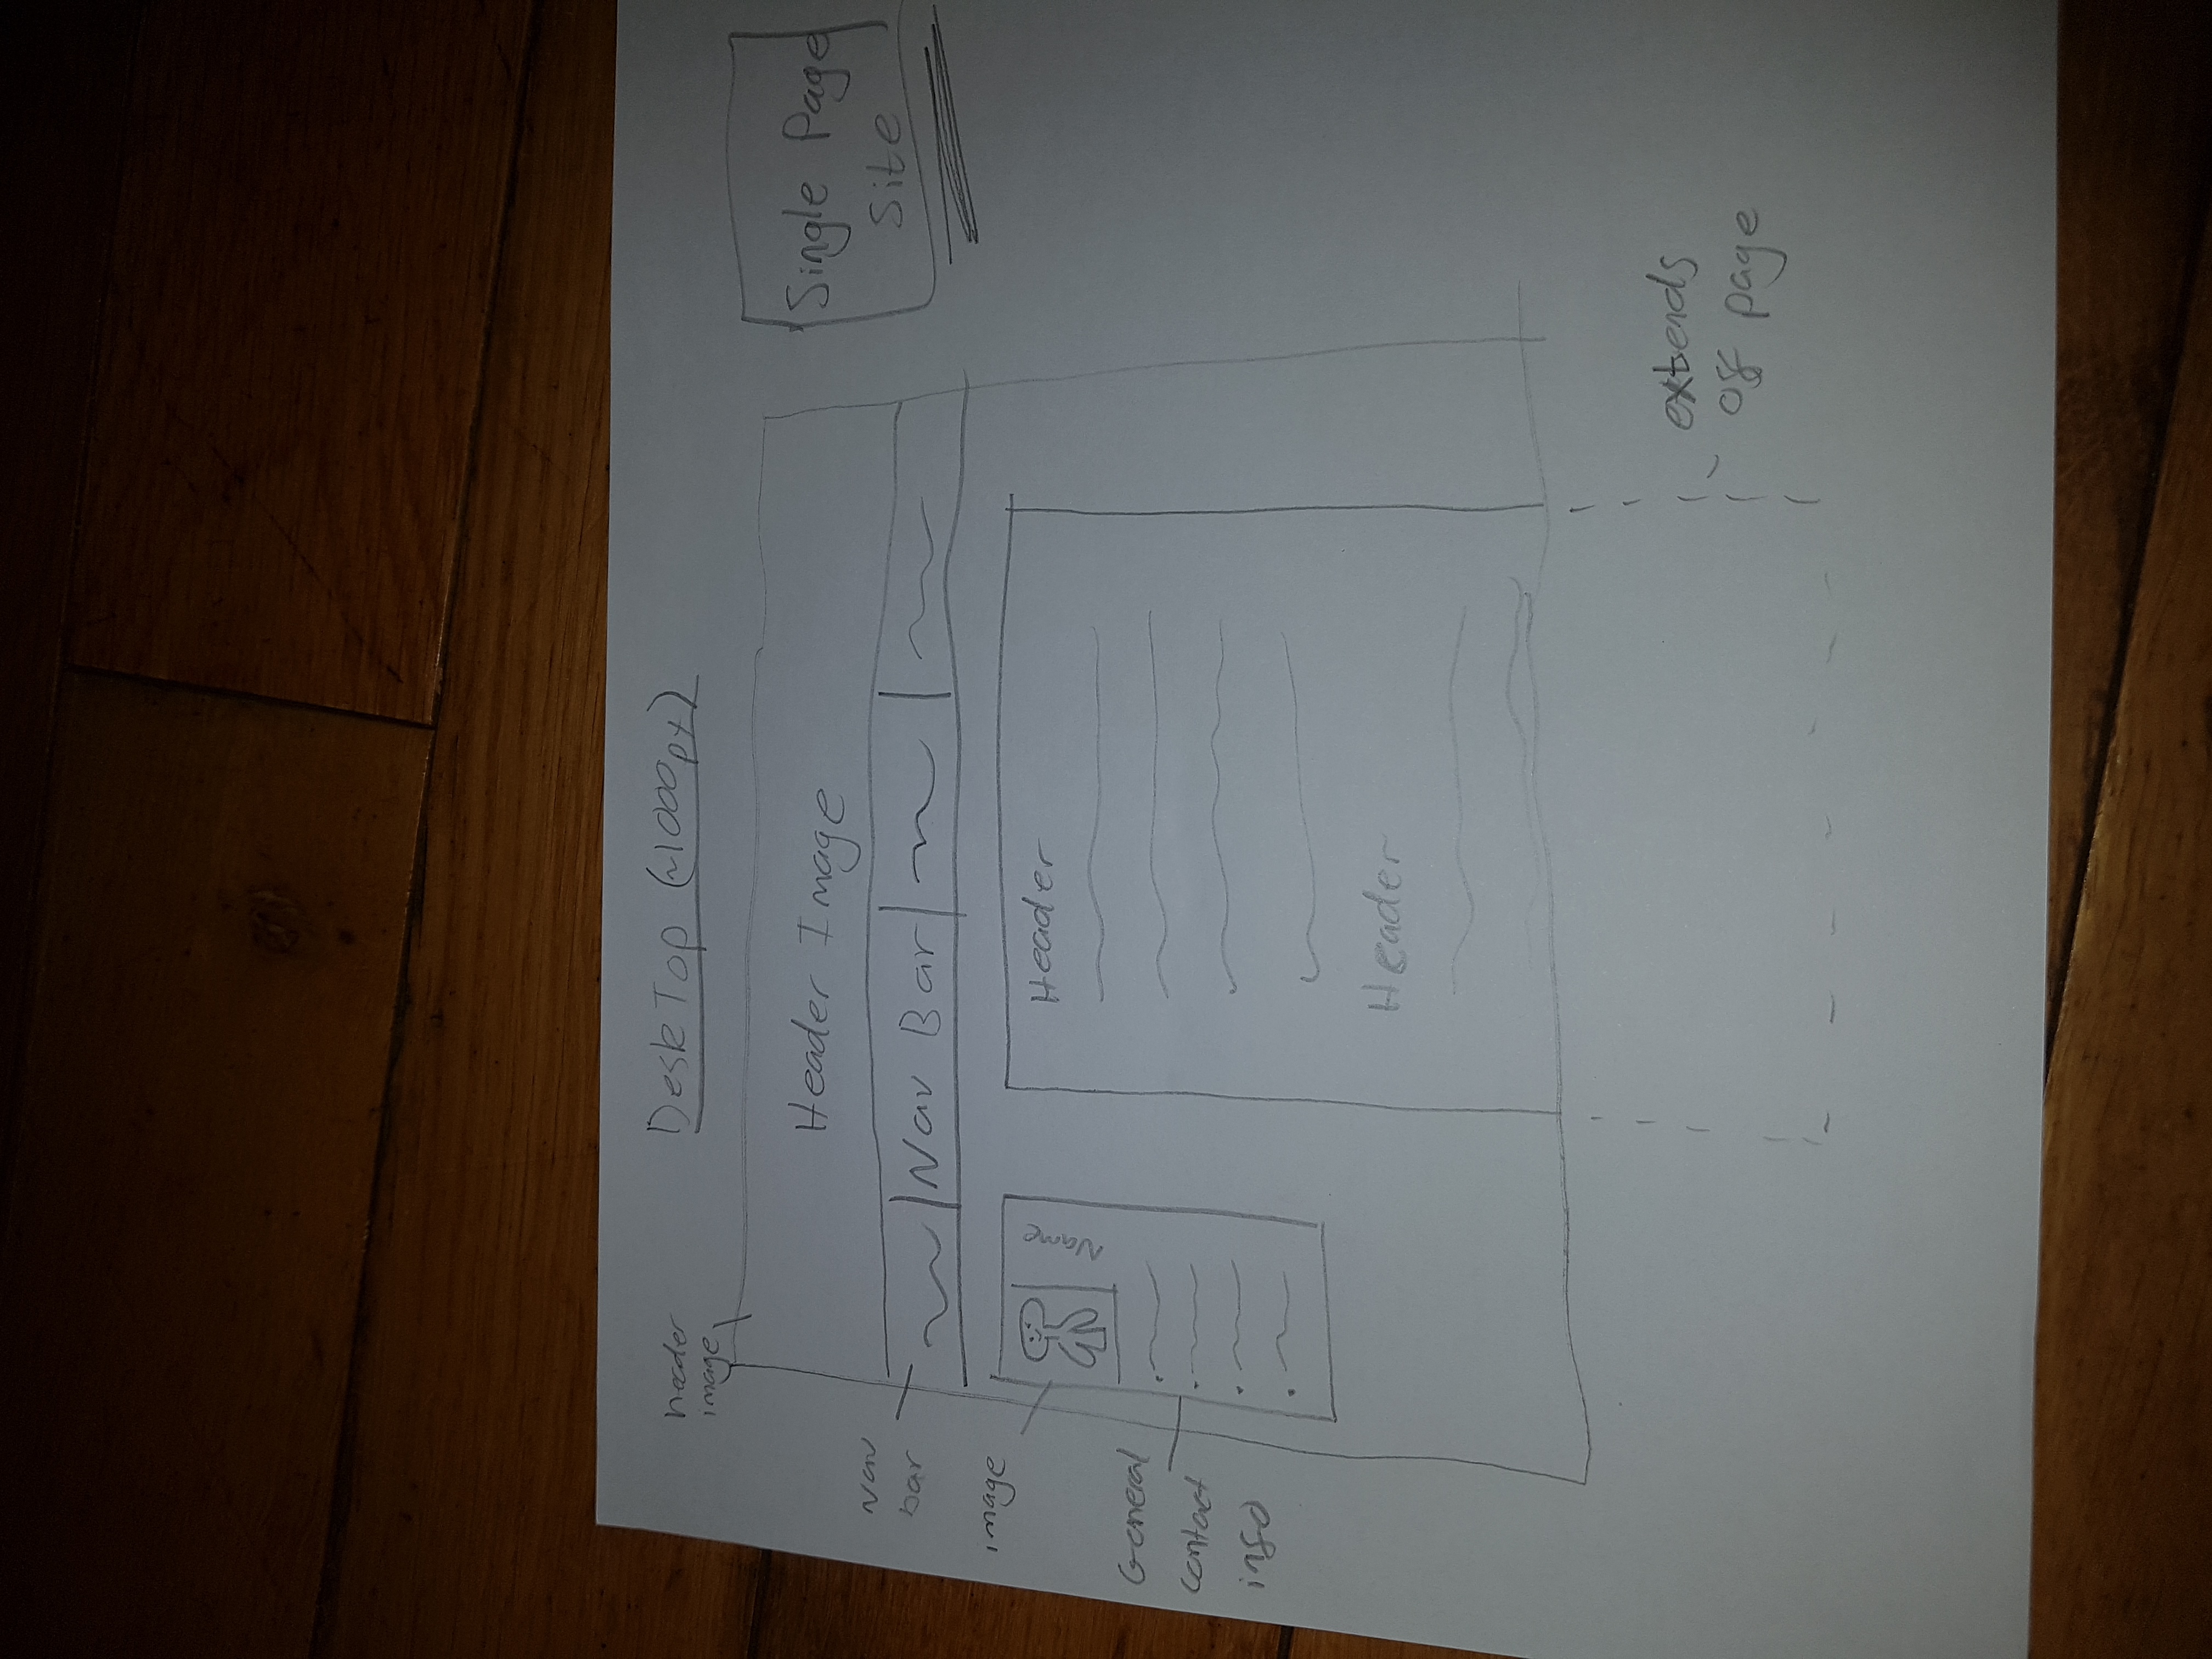 DeskTop (~1000px)
header
image
Header Image
Single Page
Site
Nav
bar
Nav Bar
image
Name
General
contact
info
Header
Header
extends
off page